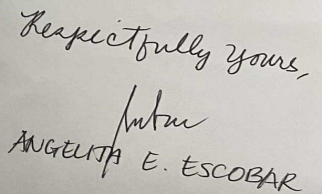 Respectfully yours,
ANGELITA E. ESCOBAR